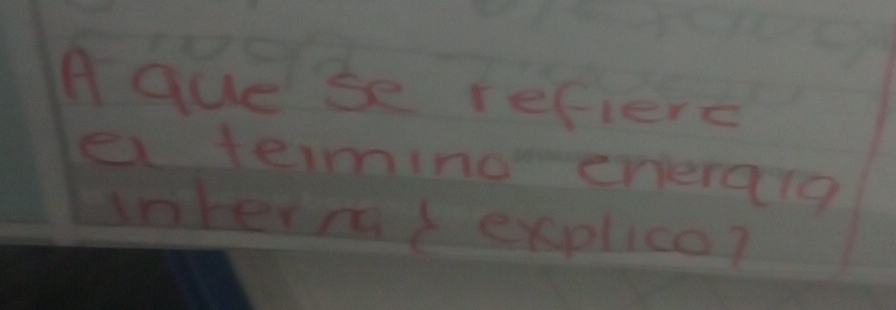 A que se refiere
el termino energia
interna y explico?